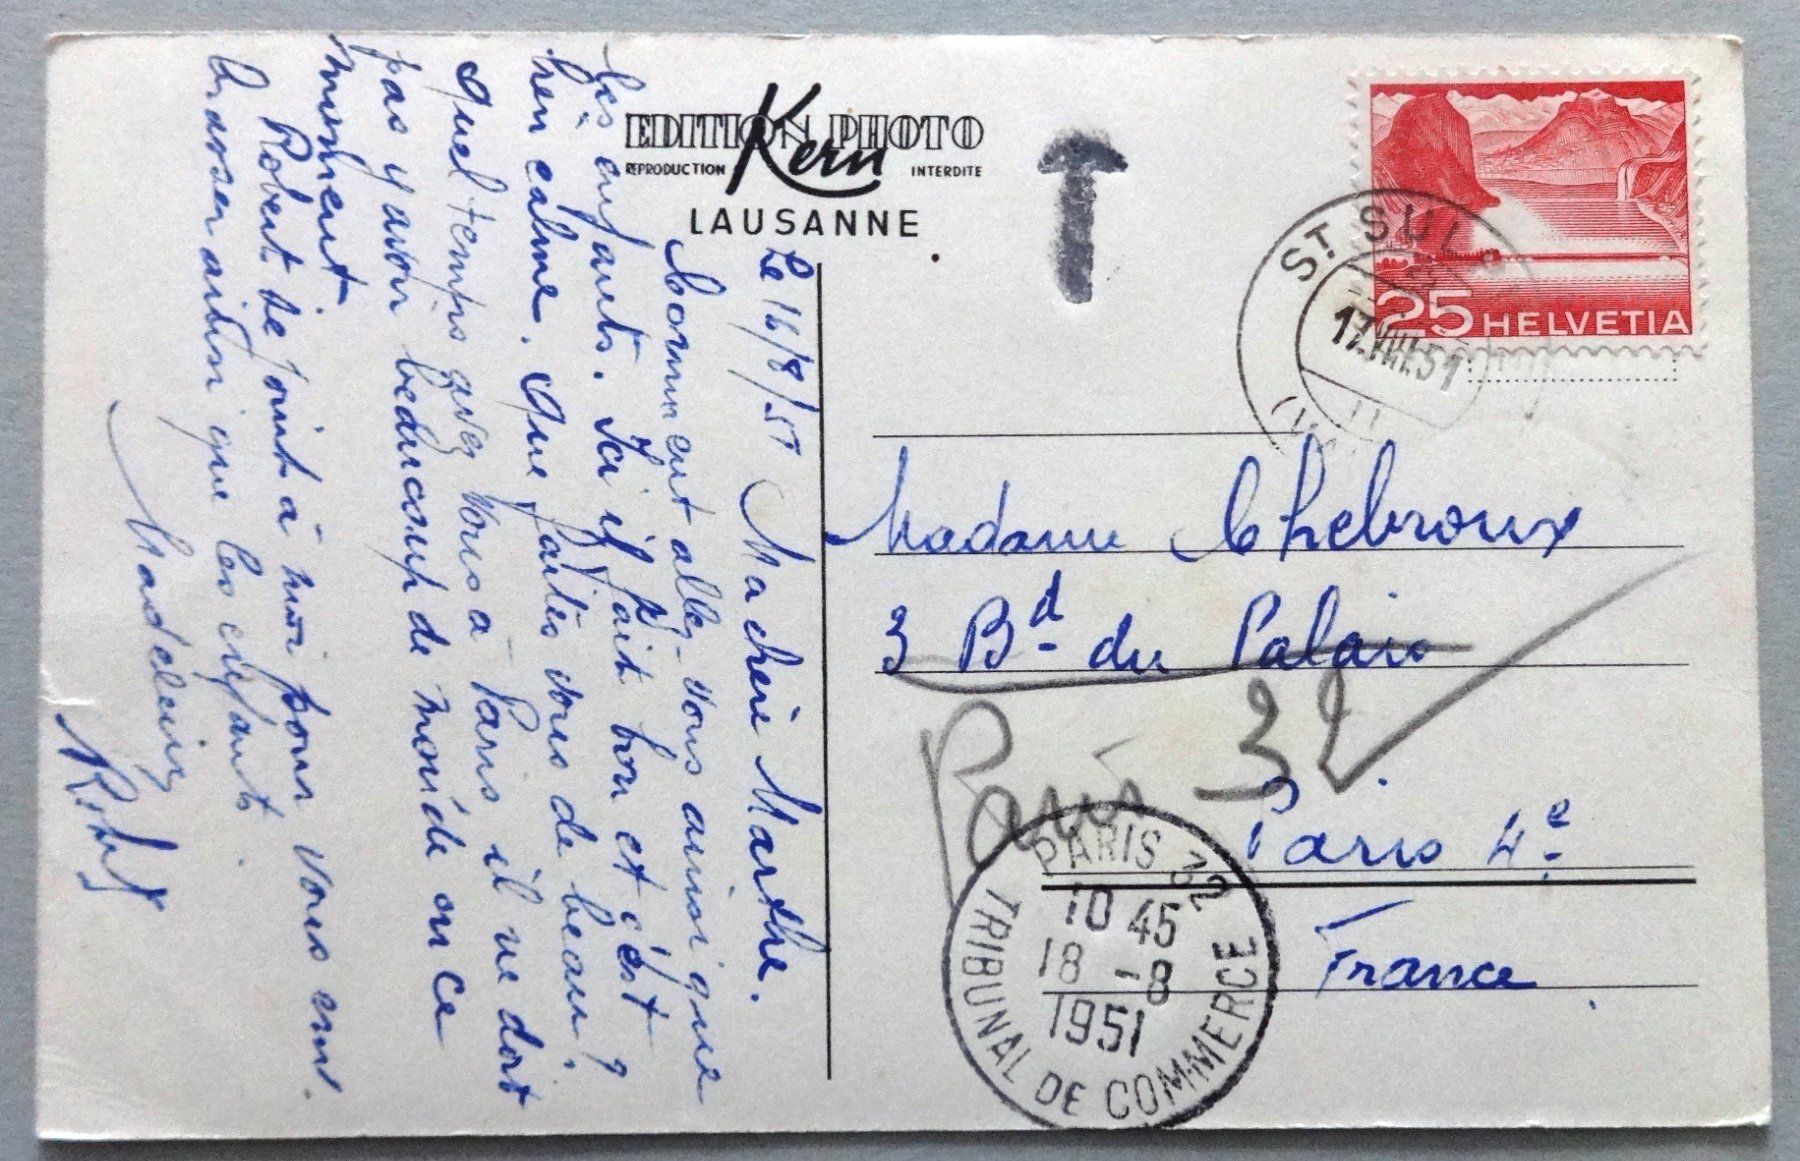 EDITION PHOTO
Kern
REPRODUCTION INTERDITE
LAUSANNE
T
ST SUL
17.VIII.51
25 HELVETIA
Le 16/8/51 Ma chère Marthe.
Comment allez-vous ainsi que
les enfants. Ici il fait bon et c'est
bien calme. Que faites vous de beau ?
Quel temps avez vous à Paris il ne doit
pas y avoir beaucoup de monde en ce
moment
Robert se joint à moi pour vous em-
brasser ainsi que les enfants.
Madeleine
Robert
Madame Chebroux
3 Bd du Palais
Paris 32
Paris 4e
France
PARIS 32
10 45
18 -8
1951
TRIBUNAL DE COMMERCE